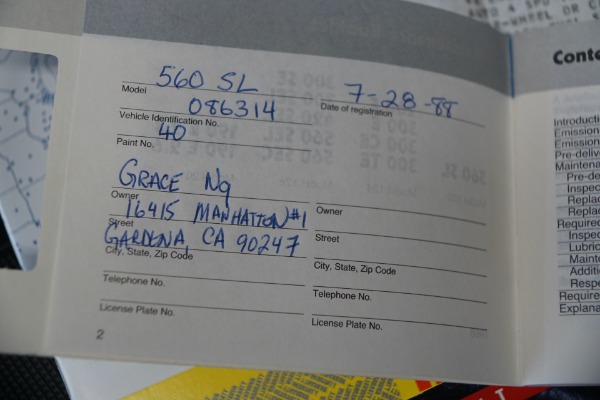 560 SL
Model
7-28-88
Date of registration
086314
Vehicle Identification No.
40
Paint No.
GRACE Ng
Owner
16415 MANHATTON #1
Street
GARDENA, CA 90247
City, State, Zip Code
Telephone No.
License Plate No.
2
Owner
Street
City, State, Zip Code
Telephone No.
License Plate No.
Conte
Introducti
Emission
Emission
Pre-deliv
Maintena
Pre-de
Inspec
Replac
Replac
Required
Inspe
Lubric
Mainte
Additi
Respe
Require
Explana